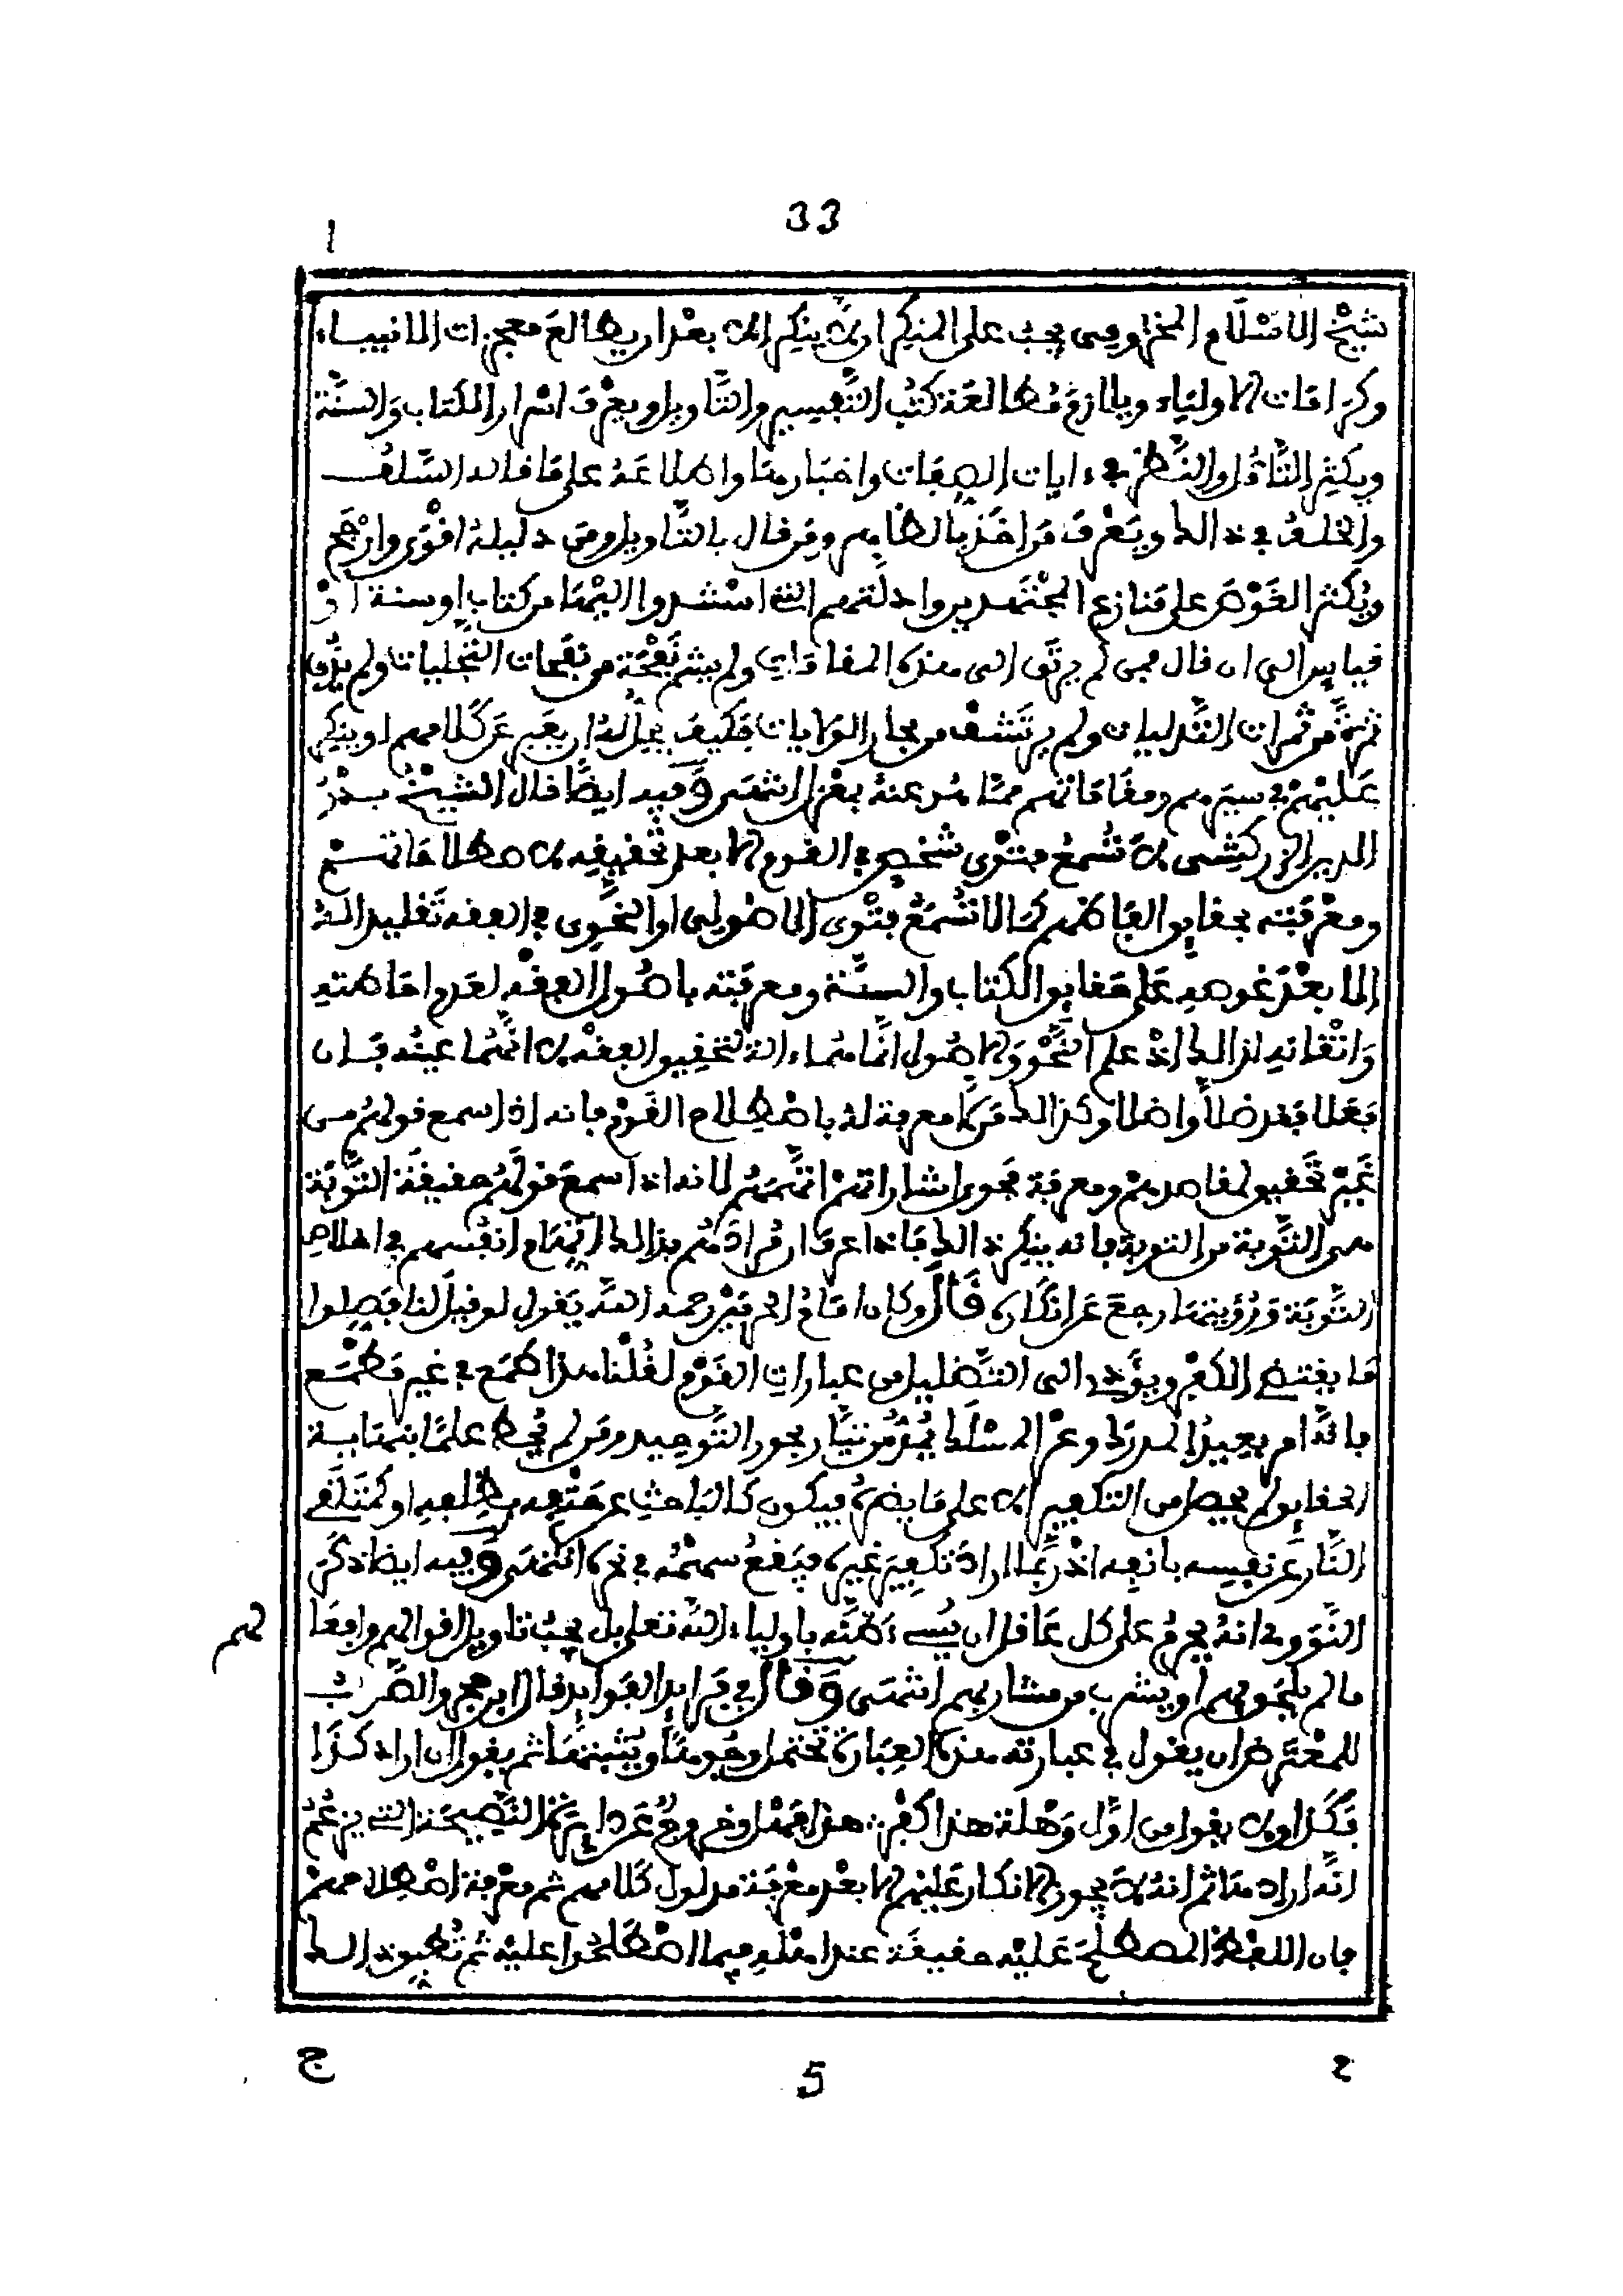 33
ا
شيخ الاسلام المخزومي يجب على المنكر ان لا ينكر الا بعد ان يطالع معجزات الانبياء
وكرامات الاولياء ويلازم مطالعة كتب التفسير والتأويل ويعرف اسرار الكتاب والسنة
ويكثر التأمل والنظر في ءايات الصفات واخبارها واطلاعه على ما قاله السلف
والخلف في ذالك ويعرف من اخذ بالظاهر ومن قال بالتأويل ومن دليله اقوى وارجح
ويكثر الغوص على منازع المجتهدين وادلتهم التي استندوا اليها من كتاب او سنة او
قياس الى ان قال فمن لم يرتق الى هذه المقامات ولم يشم نفحة من نفحات التجليات ولم يذق
ثمرة من ثمرات التدليات ولم يرتشف من بحار الولايات فكيف يحل له ان يعبر عن كلامهم او ينكر
عليهم في سيرهم ومقاماتهم مما هو عنه بمعزل انتهى وفيه ايضا قال الشيخ بدر
الدين الزركشي لا تسمع فتوى شخص في القوم الا بعد تحقيقه لاصطلاحاتهم
ومعرفته بحقايق الفاظهم كما لا تسمع فتوى الاصولي او النحوي في الفقه تقليدا له
الا بعد غوصه على حقايق الكتاب والسنة ومعرفته باصول الفقه لعدم احاطته
واتقانه لذالك اذ علم النحو والاصول انما هما ءالة لتحقيق الفقه لا انهما عينه فان
فعل فقد ضل واضل وكذالك من لا معرفة له باصطلاح القوم فانه اذا سمع قولهم من
غير تحقيق لمقاصدهم ومعرفة فحوى اشاراتهم اتهمهم لانه اذا سمع قولهم حقيقة التوبة
هي التوبة من التوبة فانه ينكر ذالك فاذا عرف ان مرادهم بذالك اتهام انفسهم في اخلاص
التوبة ورؤيتها رجع عن انكاره قال وكان امام الحرمين رحمه الله يقول لو قيل لنا فصلوا
ما يقتضي الكفر ويؤدي الى التضليل من عبارات القوم لقلنا هذا طمع في غير مطمع
فانه امر بعيد المدرك وعر المسلك يغترف من تيار بحور التوحيد ومن لم يحط علما بنهاية
الحقايق لم يحصل من التكفير الا على ما يضره فيكون كالباحث عن حتفه بظلفه او كمتلقي
النار عن نفسه بانفه اذ ربما اراد تكفير غيره فيقع سهمه في نحره انتهى وفيه ايضا ذكر
النووي انه يحرم على كل عاقل ان يسيء ظنه باولياء الله تعلى بل يجب تاويل اقوالهم وافعا
لهم
ما لم يلحق بهم او يشرب من مشاربهم انتهى وقال في فرايد الفوايد قال ابن حجر والصواب
للمعترض ان يقول في عبارته هذه العبارة تحتمل وجوها ويبينها ثم يقول ان اراد كذا
فكذا ولا يقول من اول وهلة هذا كفر هذا جهل وخروج عن دايرة النصيحة التي يزعم
انه ارادها ثم انه لا يجوز الانكار عليهم الا بعد معرفة مدلول كلامهم ثم معرفة اصطلاحهم
فان اللفظ المصطلح عليه حقيقة عند اهله فيما اصطلحوا عليه ثم تطبيق ذالك
ح
5
ج